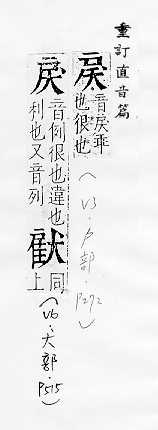 重訂直音篇
音戾乖
也很也
(V3.户部.P272)
戾
音例很也違也
利也又音列
同
上
(V6.犬部.P515)